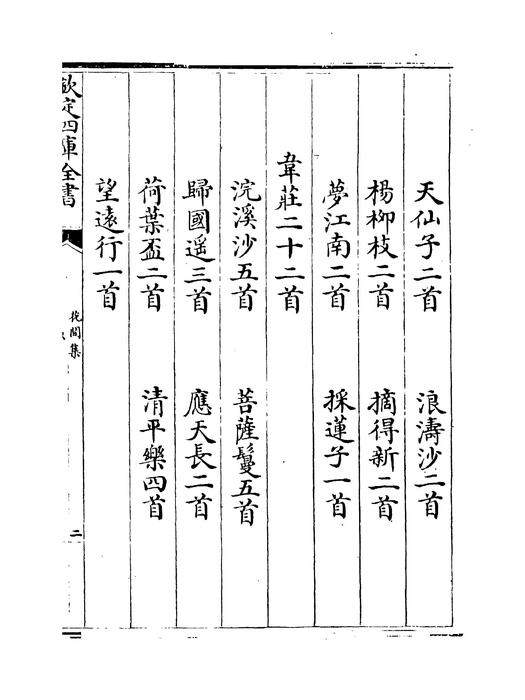 天仙子二首　浪濤沙二首
楊柳枝二首　摘得新二首
夢江南二首　採蓮子一首
韋莊二十二首
浣溪沙五首　菩薩鬘五首
歸國遥三首　應天長二首
荷葉盃二首　清平樂四首
望遠行一首
欽定四庫全書
花間集
二